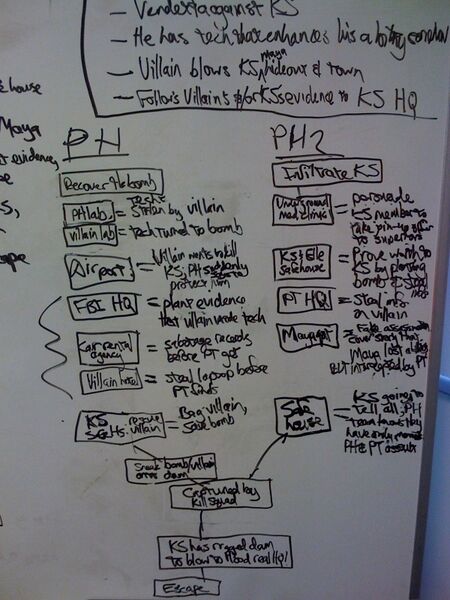 Vendetta against KS
He has tech that enhances his ability
Villain blows KS, Maya hideout & town
Follows Villain's &/or KS's evidence to KS HQ
house
Maya
evidence,
PH
Recover the bomb
PH lab = tech stolen by villain
Villain lab = tech turned to bomb
Airport = Villain wants to kill
KS, PH
protect him
FBI HQ = plant evidence
that villain made tech
Car rental agency = sabotage records
before PT get
Villain hotel = steal laptop before
PT finds
KS rescue villain = Bag villain,
save bomb
PH2
Infiltrate KS
Underground med clinic = persuade
KS member to
take up offer
to superiors
KS & Ele
Safehouse = Prove worth to
KS by planting
bomb & steal
PT HQ = Steal info
on villain
Maya apt = Fake
cover story that
Maya lost
BUT intercepted by PT
Safe house = KS going to
tell all, PH
team knows they
have only
PH & PT assets
Sneak bomb/villain
dam
Captured by
Kill Squad
KS has rigged dam
to blow to flood real HQ!
Escape